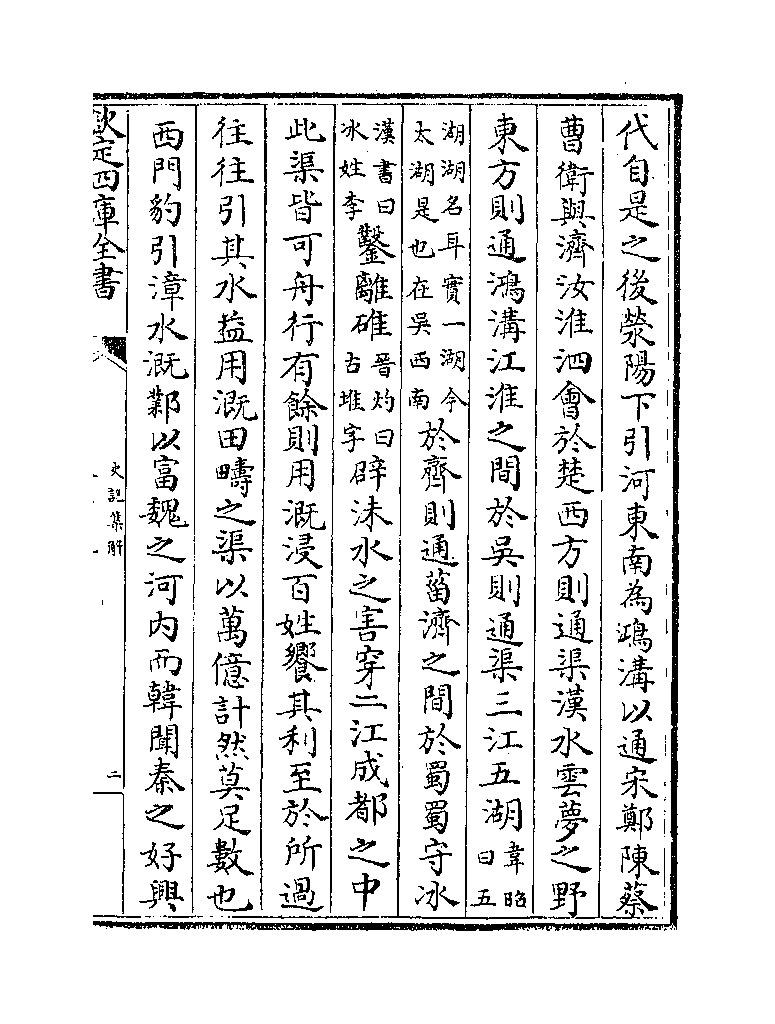 代自是之後滎陽下引河東南為鴻溝以通宋鄭陳蔡
曹衛與濟汝淮泗會於楚西方則通渠漢水雲夢之野
東方則通鴻溝江淮之間於吳則通渠三江五湖韋昭曰五
湖湖名耳實一湖今太湖是也在吳西南於齊則通菑濟之間於蜀蜀守冰
漢書曰冰姓李鑿離碓晉灼曰古堆字辟沬水之害穿二江成都之中
此渠皆可舟行有餘則用溉浸百姓饗其利至於所過
往往引其水益用溉田疇之渠以萬億計然莫足數也
西門豹引漳水溉鄴以富魏之河内而韓聞秦之好興
欽定四庫全書
史記集解
二